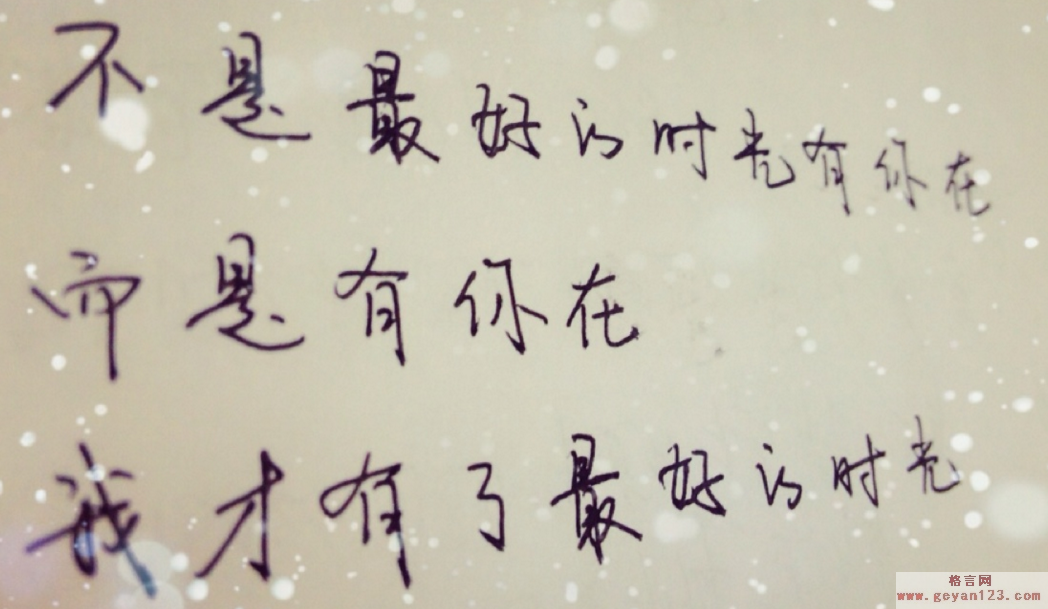 不是最好的时光有你在
而是有你在
我才有了最好的时光
格言网
www.geyan123.com